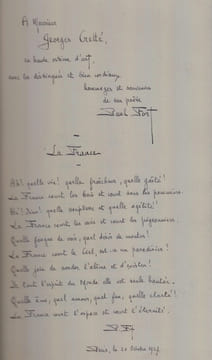 À Monsieur
Georges Cretté,
en haute estime d'art,
avec les distingués et bien cordiaux
hommages et souvenirs
de son poète
Paul Fort
La France
Ah! quelle vie! quelle fraîcheur, quelle gaîté!
La France court les bois et court dans les
Ah! quelle souplesse et quelle agilité!
La France court les airs et court les
Quelle fougue de voir, quel désir de
La France court le ciel, est-ce un paradisier!
Quelle joie de sonder l'abîme et d'exister!
Si tout l'esprit du monde elle est seule hantée.
Quelle âme, quel amour, quel feu, quelle clarté!
La France court l'espace et court l'éternité.
P. F.
Paris, le 20 Octobre 1927.